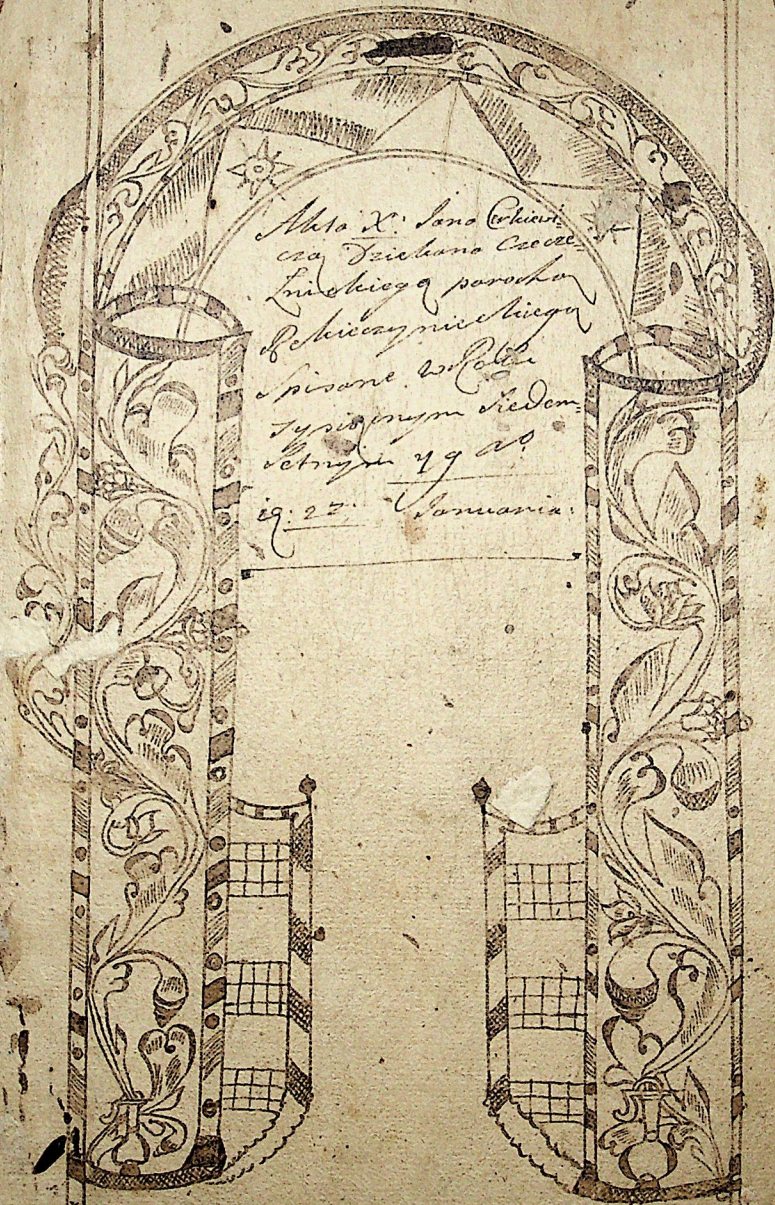 Akta X: Jana Cerkiewi-
cza Dziekana Czecze-
lnickiego parocha
Pekieczynieckiego
Spisane w Roku
tysiącznym Siedem-
setnym 79 Aº
iq: 23: Januaria: